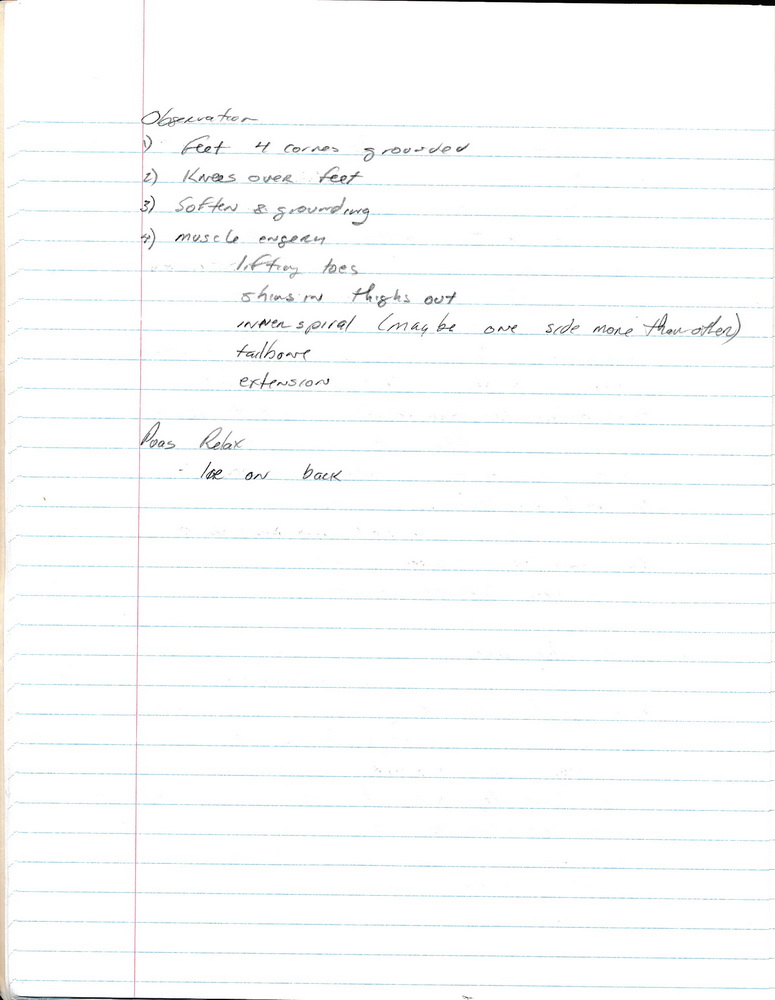 Observation
1) Feet 4 corners grounded
2) Knees over feet
3) Soften & grounding
4) muscle engery
lifting toes
shins in thighs out
inner spiral (maybe one side more than other)
tailbone
extension
Psoas Relax
- lie on back